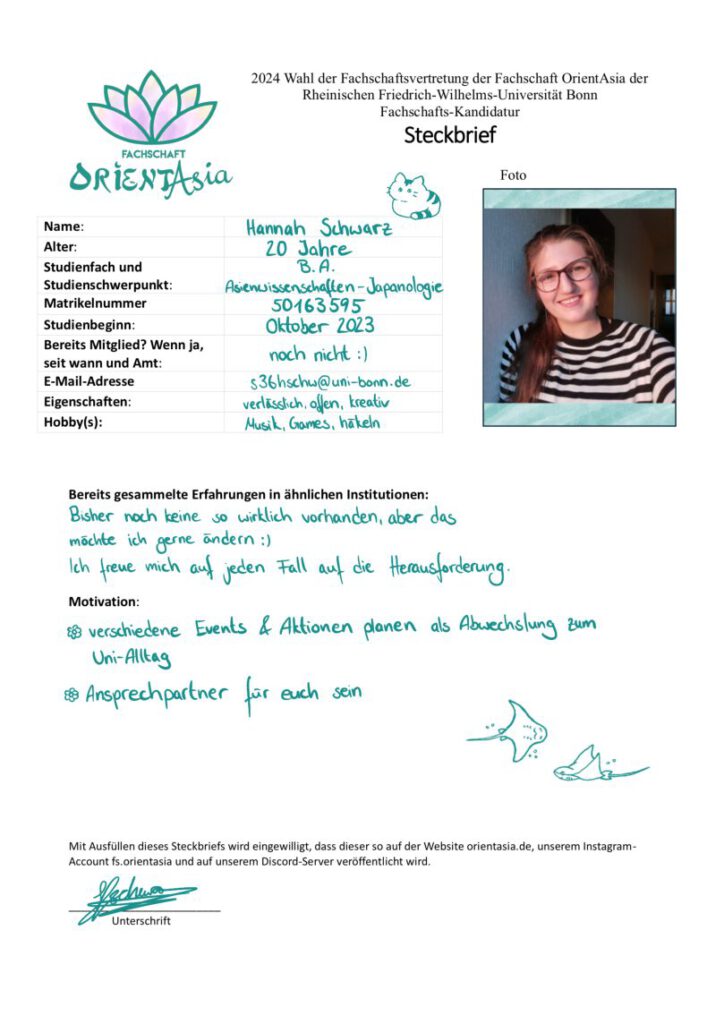 2024 Wahl der Fachschaftsvertretung der Fachschaft OrientAsia der
Rheinischen Friedrich-Wilhelms-Universität Bonn
Fachschafts-Kandidatur
Steckbrief
FACHSCHAFT
ORIENTAsia
Foto
Name: Hannah Schwarz
Alter: 20 Jahre
Studienfach und B.A.
Studienschwerpunkt: Asienwissenschaften-Japanologie
Matrikelnummer 50163595
Studienbeginn: Oktober 2023
Bereits Mitglied? Wenn ja,
seit wann und Amt: noch nicht :)
E-Mail-Adresse s36hschw@uni-bonn.de
Eigenschaften: verlässlich, offen, kreativ
Hobby(s): Musik, Games, häkeln
Bereits gesammelte Erfahrungen in ähnlichen Institutionen:
Bisher noch keine so wirklich vorhanden, aber das
möchte ich gerne ändern :)
Ich freue mich auf jeden Fall auf die Herausforderung.
Motivation:
verschiedene Events & Aktionen planen als Abwechslung zum
Uni-Alltag
Ansprechpartner für euch sein
Mit Ausfüllen dieses Steckbriefs wird eingewilligt, dass dieser so auf der Website orientasia.de, unserem Instagram-
Account fs.orientasia und auf unserem Discord-Server veröffentlicht wird.
Unterschrift